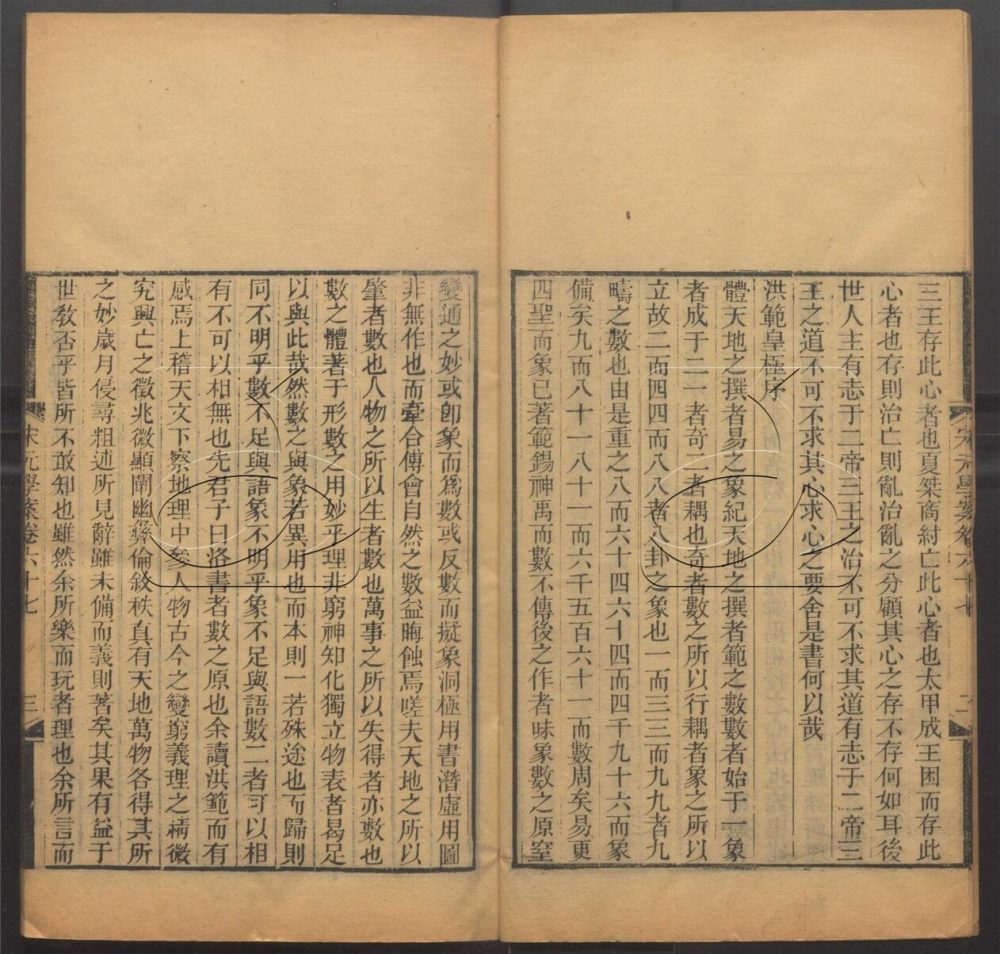 三王存此心者也夏桀商紂亡此心者也太甲成王困而存此
心者也存則治亡則亂治亂之分顧其心之存不存何如耳後
世人主有志于二帝三王之治不可不求其道有志于二帝三
王之道不可不求其心求心之要舍是書何以哉
洪範皇極序
體天地之撰者易之象紀天地之撰者範之數數者始于一象
者成于二一者奇二者耦也奇者數之所以行耦者象之所以
立故二而四四而八八者八卦之象也一而三三而九九者九
疇之數也由是重之八而六十四六十四而四千九十六而象
備矣九而八十一八十一而六千五百六十一而數周矣易更
四聖而象已著範錫神禹而數不傳後之作者昧象數之原窒
宋元學案卷六十七
二
變通之妙或卽象而爲數或反數而擬象洞極用書潛虛用圖
非無作也而牽合傅會自然之數益晦蝕焉嗟夫天地之所以
肇者數也人物之所以生者數也萬事之所以失得者亦數也
數之體著于形數之用妙乎理非窮神知化獨立物表者曷足
以與此哉然數之與象若異用也而本則一若殊途也而歸則
同不明乎數不足與語象不明乎象不足與語數二者可以相
有不可以相無也先君子曰洛書者數之原也余讀洪範而有
感焉上稽天文下察地理中參人物古今之變窮義理之精微
究興亡之徵兆微顯闡幽彝倫敘秩真有天地萬物各得其所
之妙歲月侵尋粗述所見辭雖未備而義則著矣其果有益于
世教否乎皆所不敢知也雖然余所樂而玩者理也余所言而
宋元學案卷六十七
三